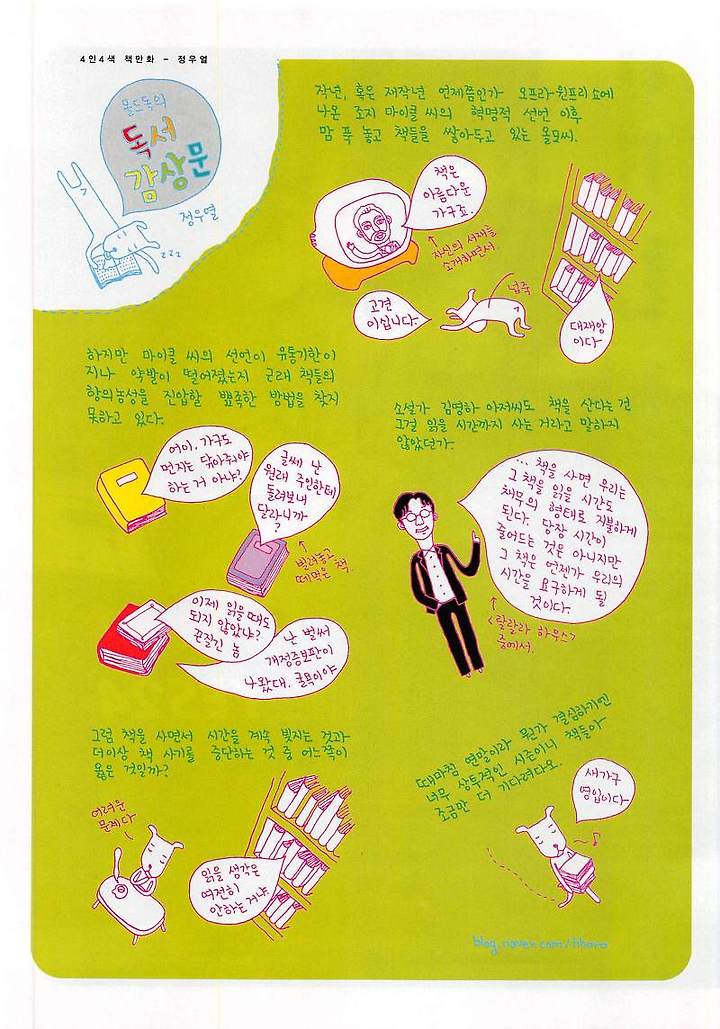 4인4색 책만화 - 정우열
올드독의
독서
감상문
정우열
zzz
작년, 혹은 재작년 언제쯤인가 오프라 윈프리 쇼에
나온 조지 마이클 씨의 혁명적 선언 이후
맘 푹 놓고 책들을 쌓아두고 있는 올모씨.
책은
아름다운
가구죠.
자신의 서재를
소개하면서.
고견
이십니다.
넙죽
대재앙
이다
하지만 마이클 씨의 선언이 유통기한이
지나 약발이 떨어졌는지 근래 책들의
항의농성을 진압할 뾰족한 방법을 찾지
못하고 있다.
어이, 가구도
먼지는 닦아줘야
하는 거 아냐?
글쎄 난
원래 주인한테
돌려보내
달라니까
?
빌려놓고
떼먹은 책.
이제 읽을 때도
되지 않았냐?
끈질긴 놈
난 벌써
개정증보판이
나왔대. 굴욕이야
소설가 김영하 아저씨도 책을 산다는 건
그걸 읽을 시간까지 사는 거라고 말하지
않았던가.
... 책을 사면 우리는
그 책을 읽을 시간도
채무의 형태로 지불하게
된다. 당장 시간이
줄어드는 것은 아니지만
그 책은 언젠가 우리의
시간을 요구하게 될
것이다
<랄랄라 하우스>
중에서.
그럼 책을 사면서 시간을 계속 빚지는 것과
더이상 책 사기를 중단하는 것 중 어느쪽이
옳은 것일까?
어려운
문제다
읽을 생각은
여전히
안하는거냐.
때마침 연말이라 뭔가 결심하기엔
너무 상투적인 시즌이니 책들아
조금만 더 기다려다오.
새가구
영입이다
blog.naver.com/hhoro